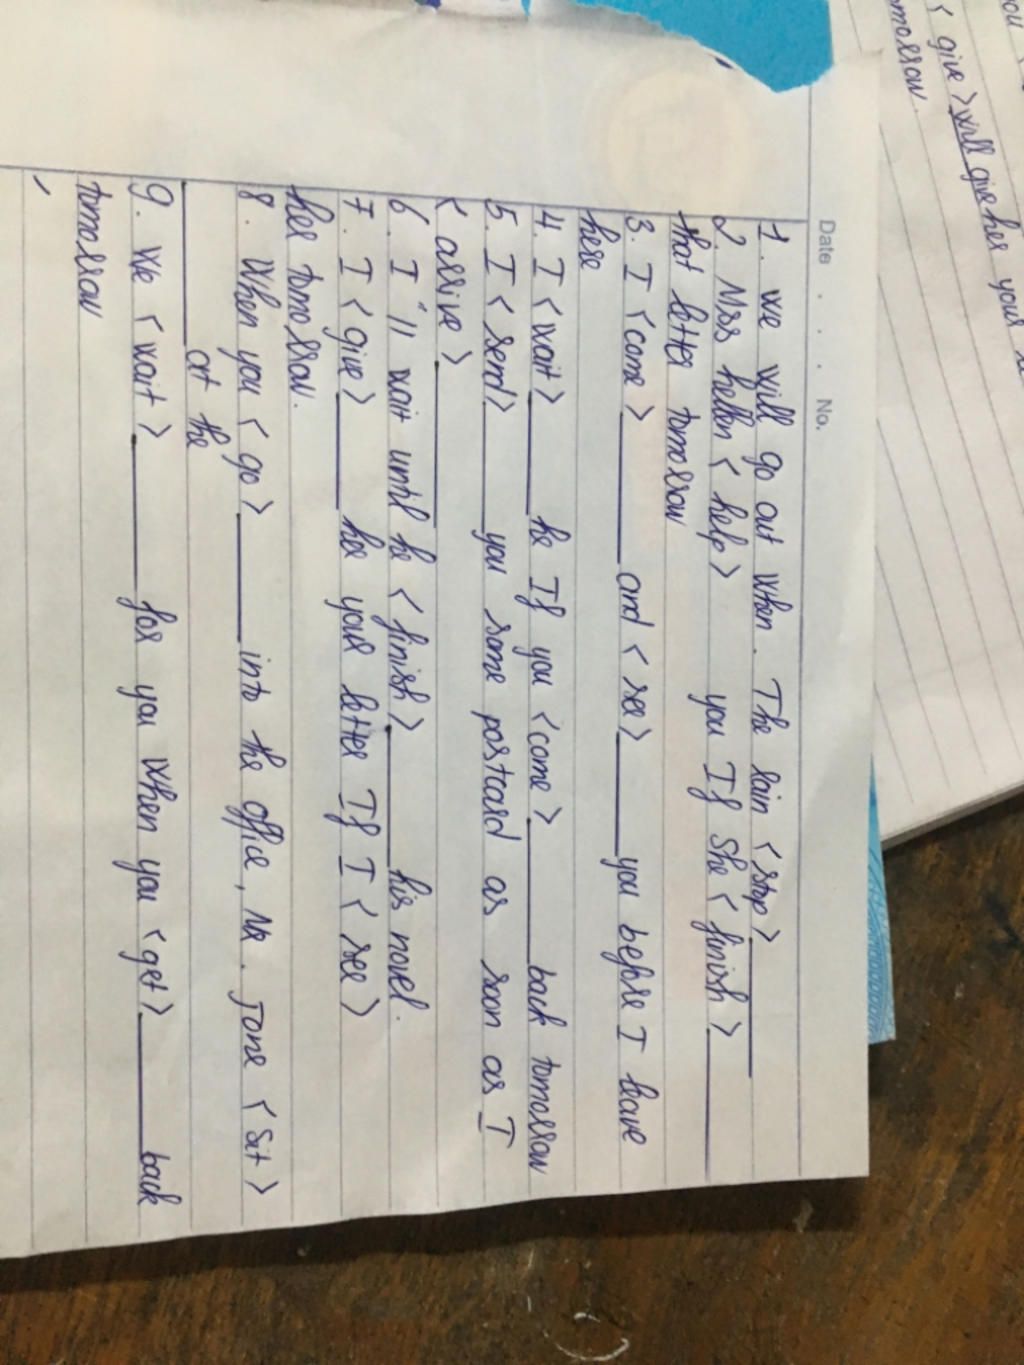 Date . . . . No.
1. We will go out when. The rain < stop > ______
2. Mrs hellen < help > you If she < finish > ______
that letter tomorrow
3. I < come > ______ and < see > ______ you before I leave
here
4. I < wait > ______ he If you < come > ______ back tomorrow
5. I < send > ______ you some postcard as soon as I
< arrive > ______
6. I "ll wait until he < finish > ______ his novel.
7. I < give > ______ her your letter If I < see >
her tomorrow.
8. When you < go > ______ into the office, Mr. Jone < sit >
______ at the
9. We < wait > ______ for you when you < get > ______ back
tomorrow
you
< give > will give her your
tomorrow.